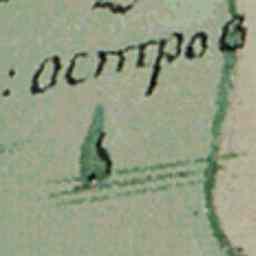 : остров